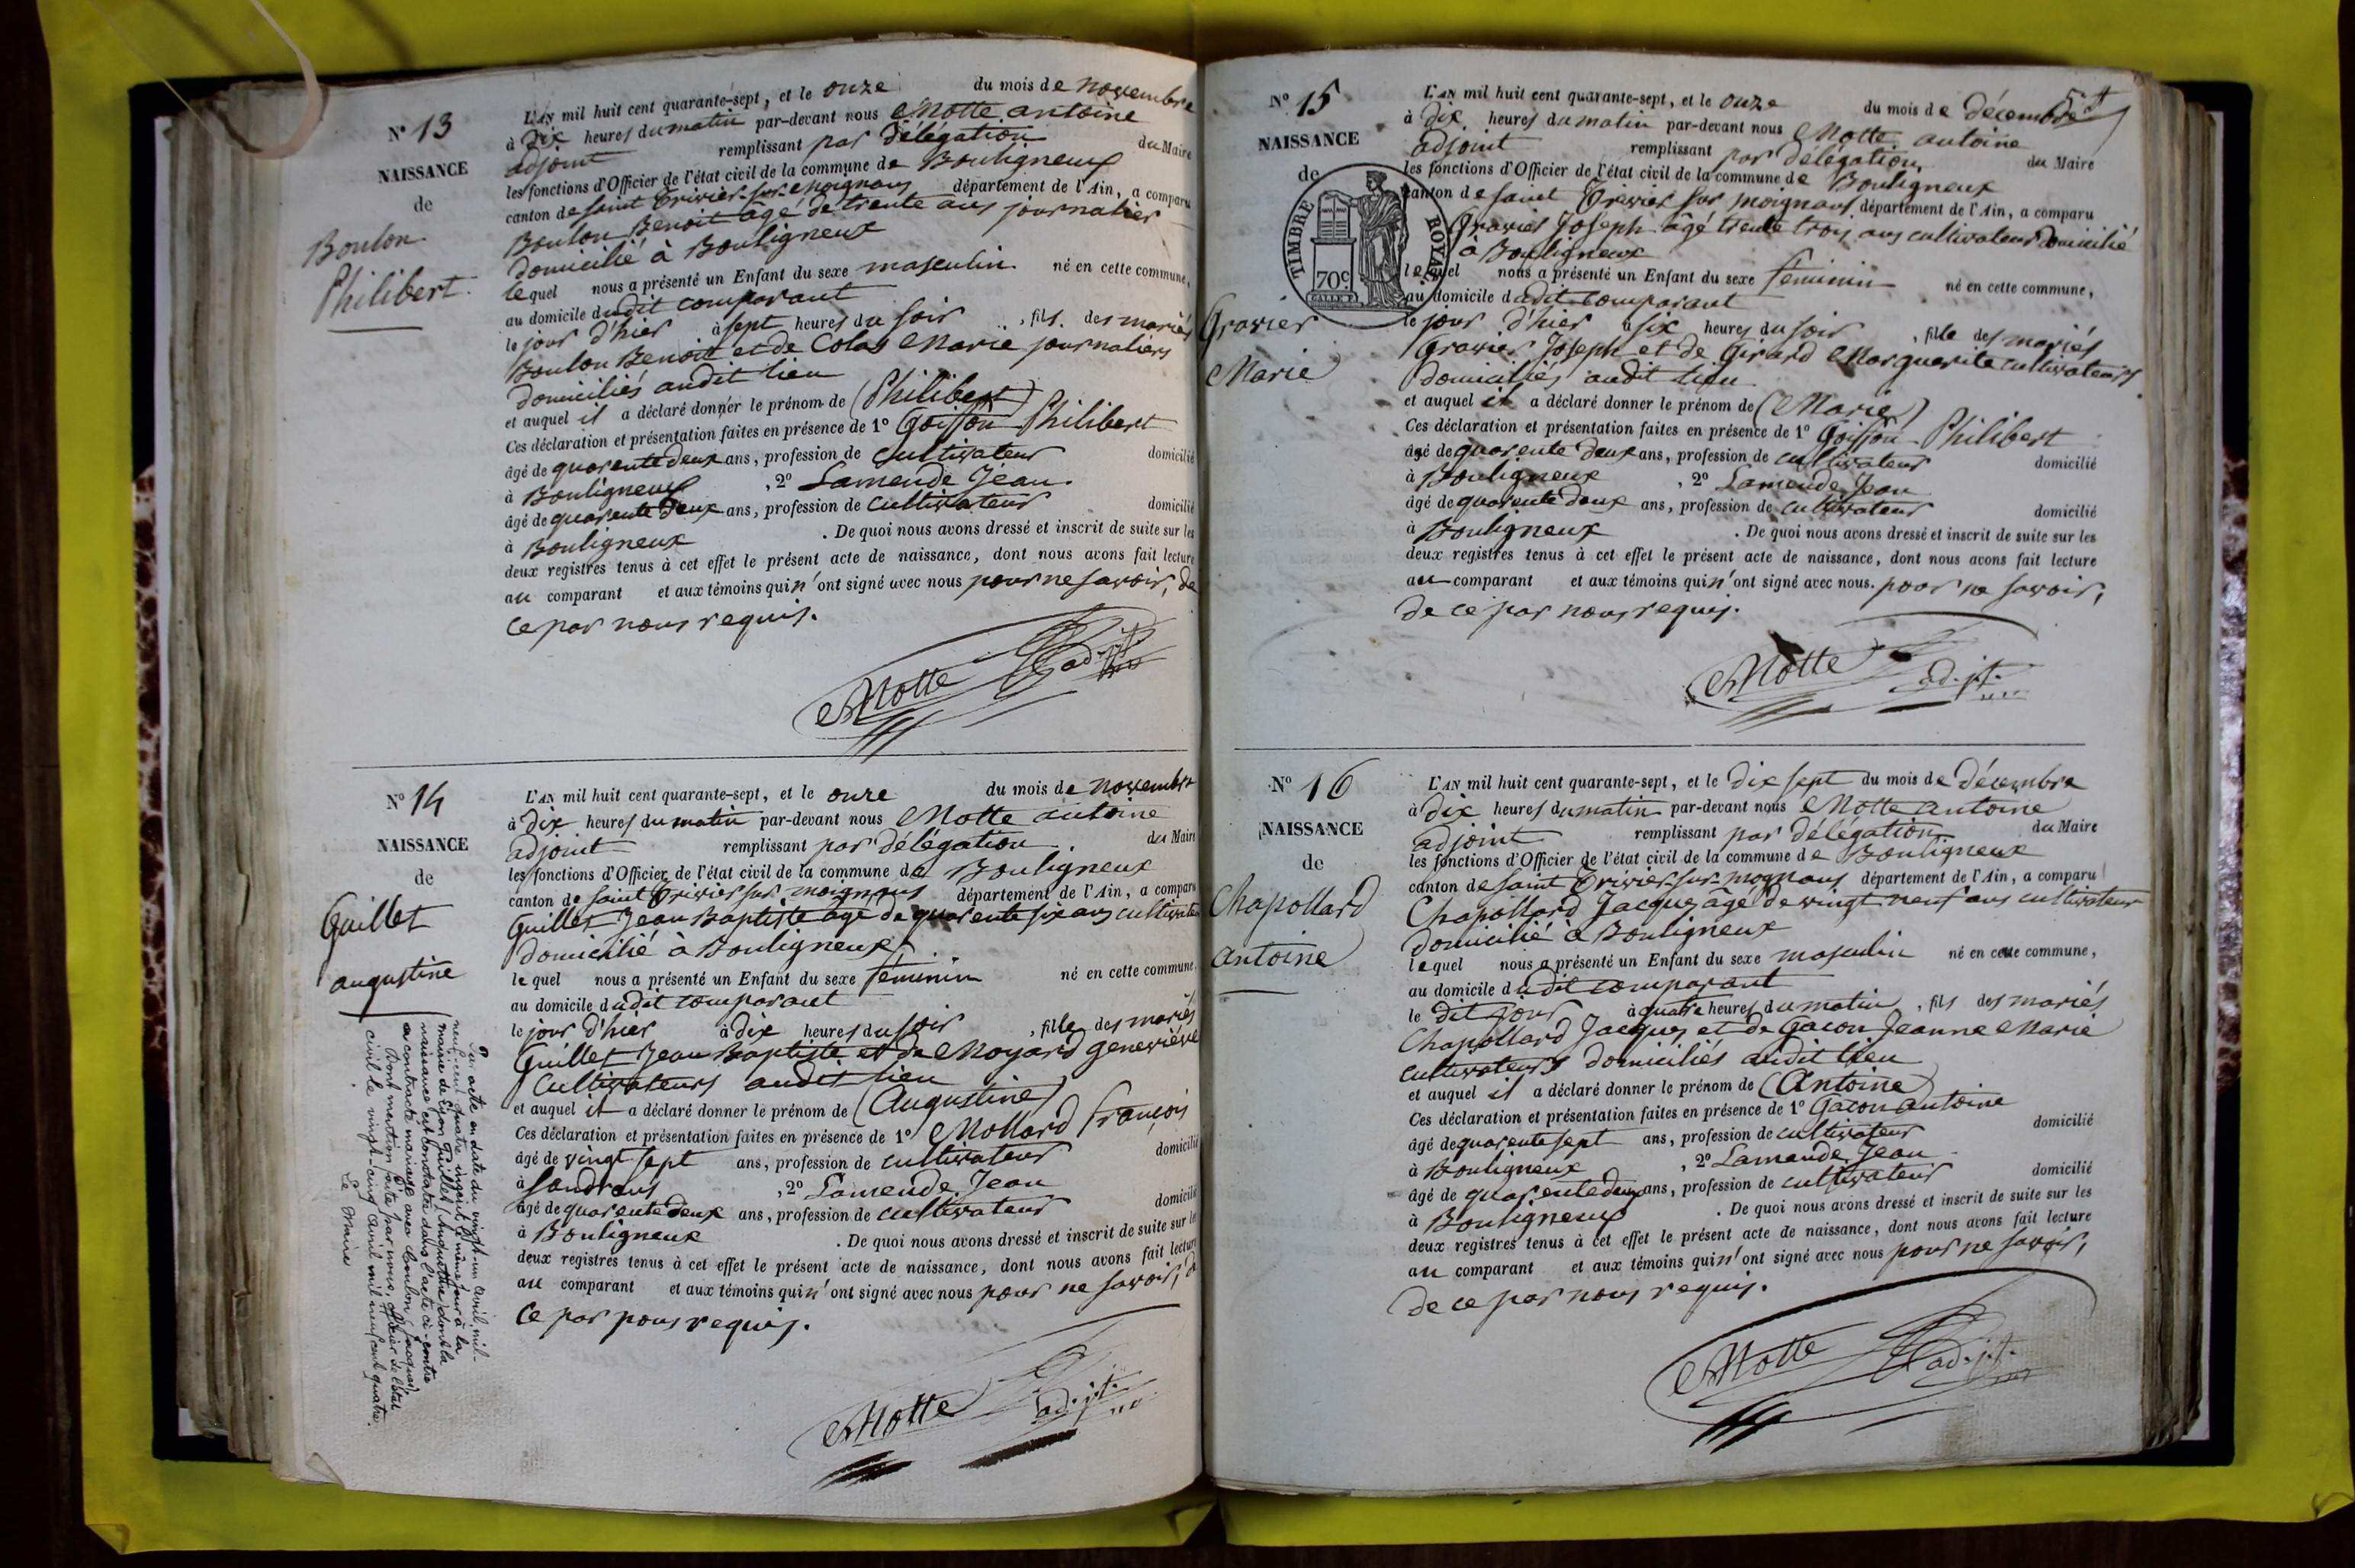 N° 13
NAISSANCE
de
Boulon
Philibert.
L'AN mil huit cent quarante-sept, et le onze du mois de novembre
à Dix heures du matin par-devant nous Motte antoine
adjoint remplissant par délégation du Maire
les fonctions d'Officier de l'état civil de la commune de Bouligneux
canton de saint Trivier-sur-Moignans département de l'Ain, a comparu
Boulon Benoit âgé de trente ans journalier
domicilié à Bouligneux
lequel nous a présenté un Enfant du sexe masculin né en cette commune,
au domicile dudit comparant
le jour d'hier à sept heures du soir, fils des mariés
Boulon Benoit et de Colas Marie journaliers
domiciliés audit lieu
et auquel il a déclaré donner le prénom de (Philibert)
Ces déclaration et présentation faites en présence de 1° Goisson Philibert
âgé de quarente deux ans, profession de cultivateur domicilié
à Bouligneux, 2° Lamende Jean.
âgé de quarente deux ans, profession de cultivateur domicilié
à Bouligneux. De quoi nous avons dressé et inscrit de suite sur les
deux registres tenus à cet effet le présent acte de naissance, dont nous avons fait lecture
au comparant et aux témoins qui n'ont signé avec nous pour ne savoir, de
ce par nous requis.
Motte adjt
N° 14
NAISSANCE
de
Guillet
augustine
L'AN mil huit cent quarante-sept, et le onze du mois de novembre
à dix heures du matin par-devant nous Motte antoine
adjoint remplissant par délégation du Maire
les fonctions d'Officier de l'état civil de la commune de Bouligneux
canton de saint Trivier sur moignans département de l'Ain, a comparu
Guillet Jean Baptiste âgé de quarente six ans cultivateur
domicilié à Bouligneux
lequel nous a présenté un Enfant du sexe féminin né en cette commune,
au domicile dudit comparant
le jour d'hier à dix heures du soir, fille des mariés
Guillet Jean Baptiste et de Moyard geneviève
cultivateurs audit lieu
et auquel il a déclaré donner le prénom de (Augustine)
Ces déclaration et présentation faites en présence de 1° Mollard françois
âgé de vingt sept ans, profession de cultivateur domicilié
à Sandrans, 2° Lamende Jean
âgé de quarente deux ans, profession de cultivateur domicilié
à Bouligneux. De quoi nous avons dressé et inscrit de suite sur les
deux registres tenus à cet effet le présent acte de naissance, dont nous avons fait lecture
au comparant et aux témoins qui n'ont signé avec nous pour ne savoir, de
ce par nous requis.
Motte adjt.
Par acte en date du vingt-un avril mil-
neuf cent quatre ingéré le même jour à la
mairie de Lyon Guillet (Augustine) dont la
naissance est constatée dans l'acte ci-contre
a contracté mariage avec Boulon (Jacques)
Dont mention faite par nous, officier de l'état
civil le vingt-cinq avril mil neuf cent quatre.
Le Maire
N° 15
NAISSANCE
de
TIMBRE ROYAL
70c
Gravier
Marie
L'AN mil huit cent quarante-sept, et le onze du mois de décembre
à dix heures du matin par-devant nous Motte antoine
adjoint remplissant par délégation du Maire
les fonctions d'Officier de l'état civil de la commune de Bouligneux
canton de saint Trivier sur moignans département de l'Ain, a comparu
Gravier Joseph âgé trente trois ans cultivateur domicilié
à Bouligneux
lequel nous a présenté un Enfant du sexe féminin né en cette commune,
au domicile dudit comparant
le jour d'hier à six heures du soir, fille des mariés
Gravier Joseph et de Girard Marguerite cultivateurs
domiciliés audit lieu
et auquel il a déclaré donner le prénom de (Marie)
Ces déclaration et présentation faites en présence de 1° Goisson Philibert
âgé de quarente deux ans, profession de cultivateur domicilié
à Bouligneux, 2° Lamende Jean
âgé de quarente deux ans, profession de cultivateur domicilié
à Bouligneux. De quoi nous avons dressé et inscrit de suite sur les
deux registres tenus à cet effet le présent acte de naissance, dont nous avons fait lecture
au comparant et aux témoins qui n'ont signé avec nous. pour ne savoir,
de ce par nous requis.
Motte adjt.
N° 16
NAISSANCE
de
Chapollard
antoine
L'AN mil huit cent quarante-sept, et le dix sept du mois de décembre
à dix heures du matin par-devant nous Motte antoine
adjoint remplissant par délégation du Maire
les fonctions d'Officier de l'état civil de la commune de Bouligneux
canton de saint Trivier-sur-mognans département de l'Ain, a comparu
Chapollard Jacques âgé de vingt neuf ans cultivateur
domicilié à Bouligneux
lequel nous a présenté un Enfant du sexe masculin né en cette commune,
au domicile dudit comparant
le dit jour à quatre heures du matin, fils des mariés
Chapollard Jacques et de Gacon Jeanne Marie
cultivateurs domiciliés audit lieu
et auquel il a déclaré donner le prénom de (Antoine)
Ces déclaration et présentation faites en présence de 1° Gacon antoine
âgé de quarente sept ans, profession de cultivateur domicilié
à Bouligneux, 2° Lamende Jean
âgé de quarente deux ans, profession de cultivateur domicilié
à Bouligneux. De quoi nous avons dressé et inscrit de suite sur les
deux registres tenus à cet effet le présent acte de naissance, dont nous avons fait lecture
au comparant et aux témoins qui n'ont signé avec nous pour ne savoir,
de ce par nous requis.
Motte adjt.